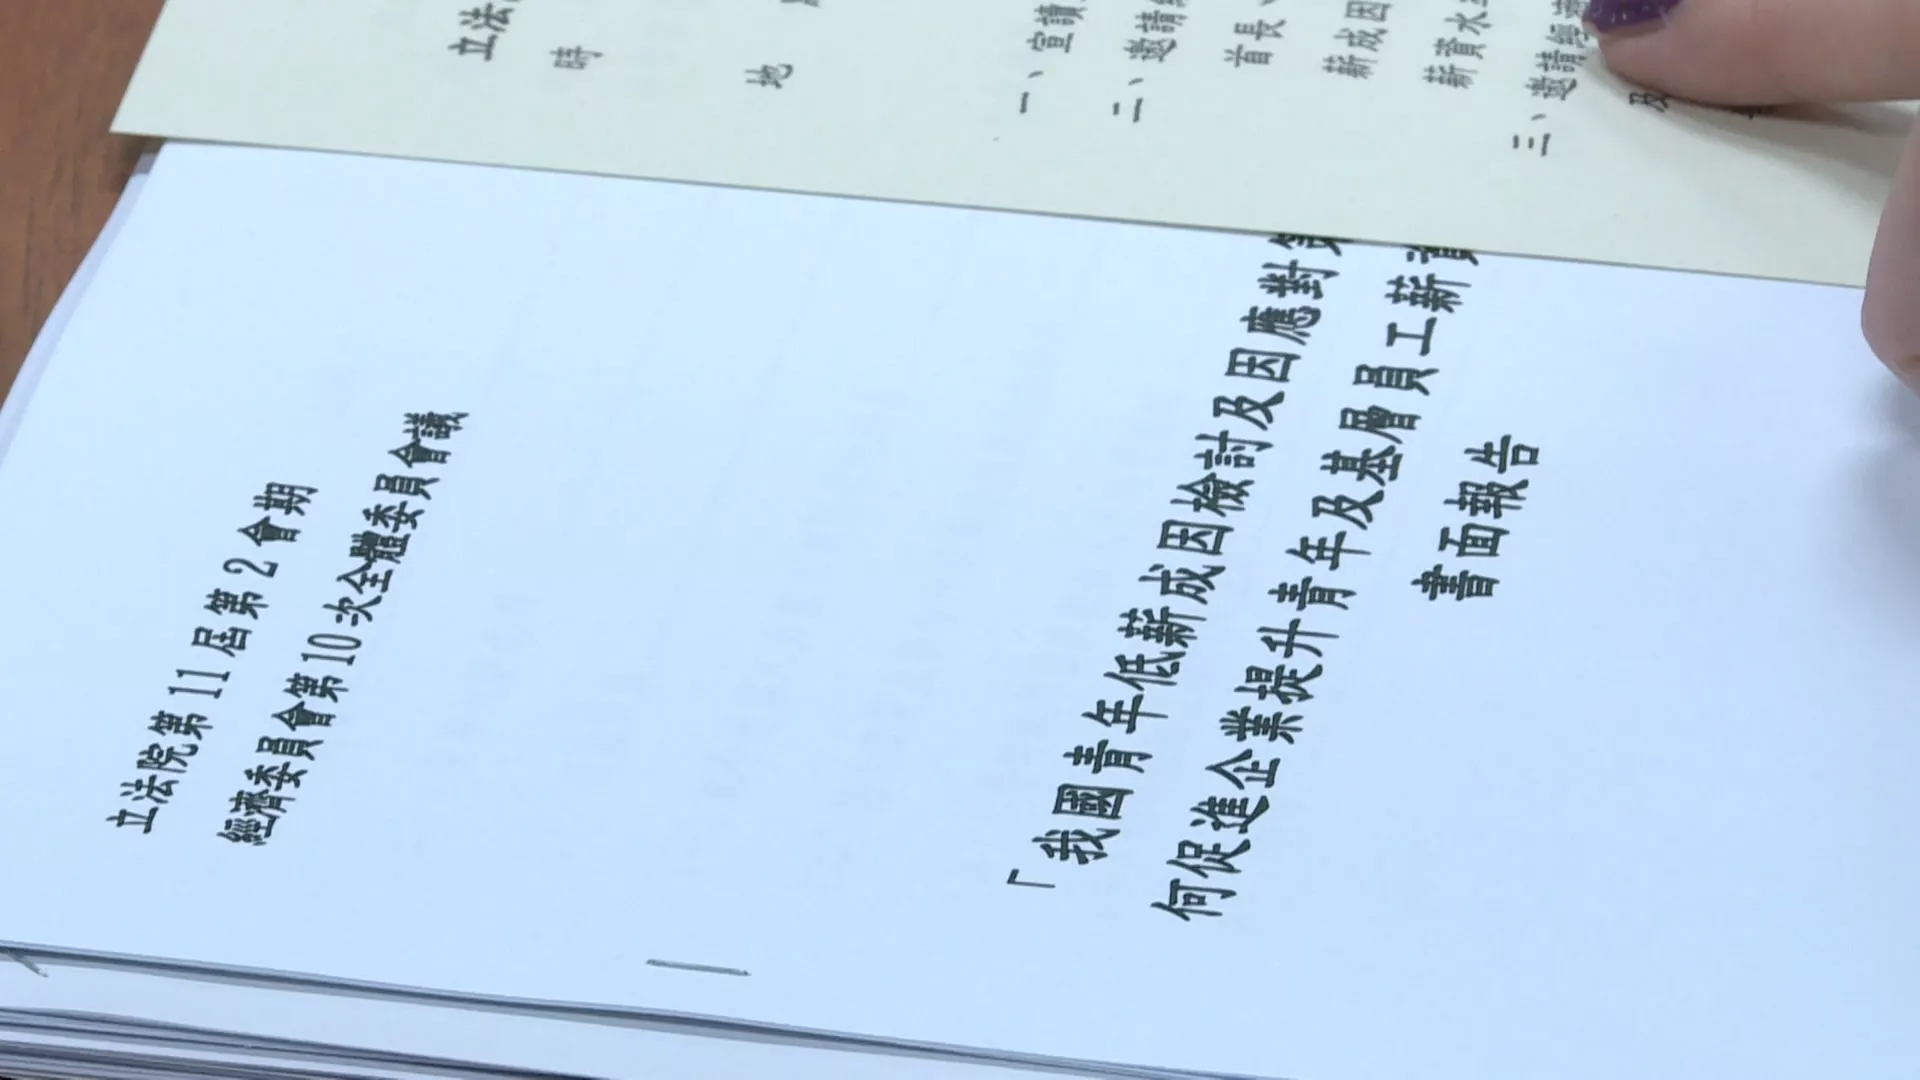 立法
時
地
一、宣讀
二、邀請
首長、
薪成因
薪資水
三、邀請
及
立法院第11屆第2會期
經濟委員會第10次全體委員會議
「我國青年低薪成因檢討及因應對策
何促進企業提升青年及基層員工薪資
書面報告